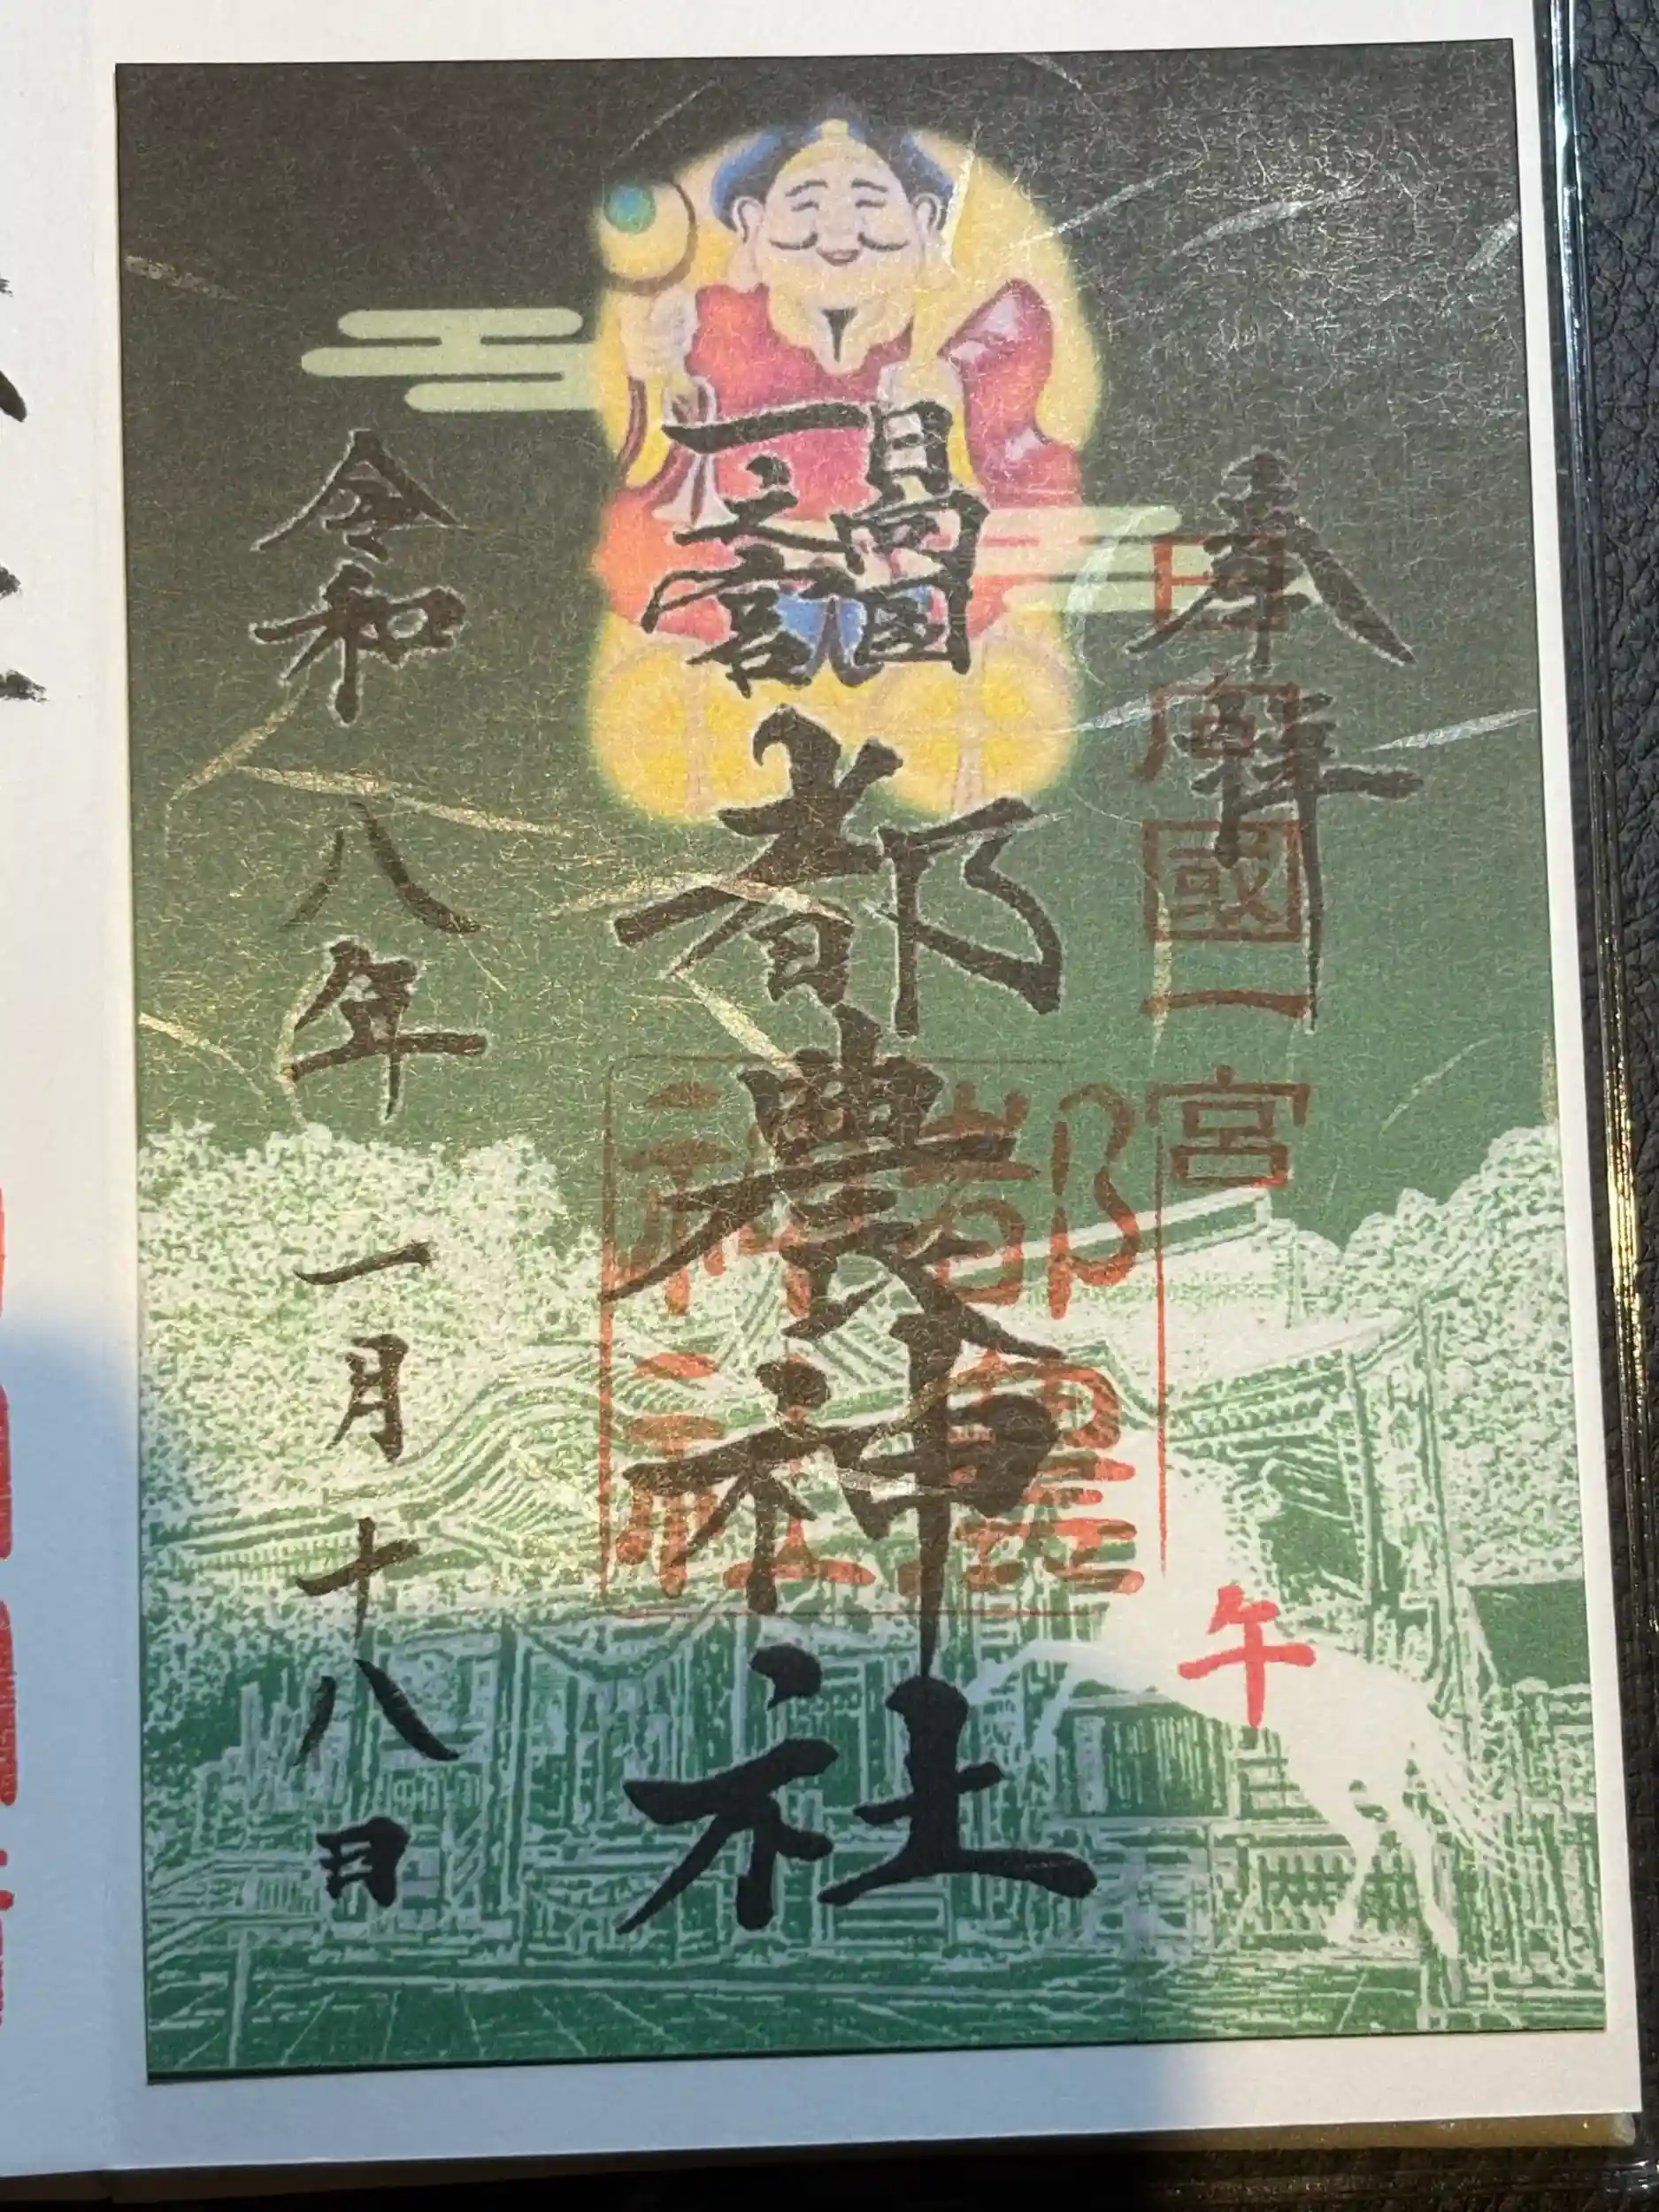 奉拝
日向國一宮
日向国
一之宮
都農神社
都農
神社
午
令和八年
一月十八日